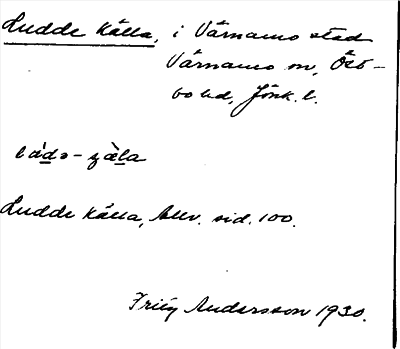 Ludde Källa, i Värnamo stad
Värnamo sn, Öst-
bo hd, Jönk. l.
Ludde Källa, Allv. sid. 100.
Fritz Andersson 1930.